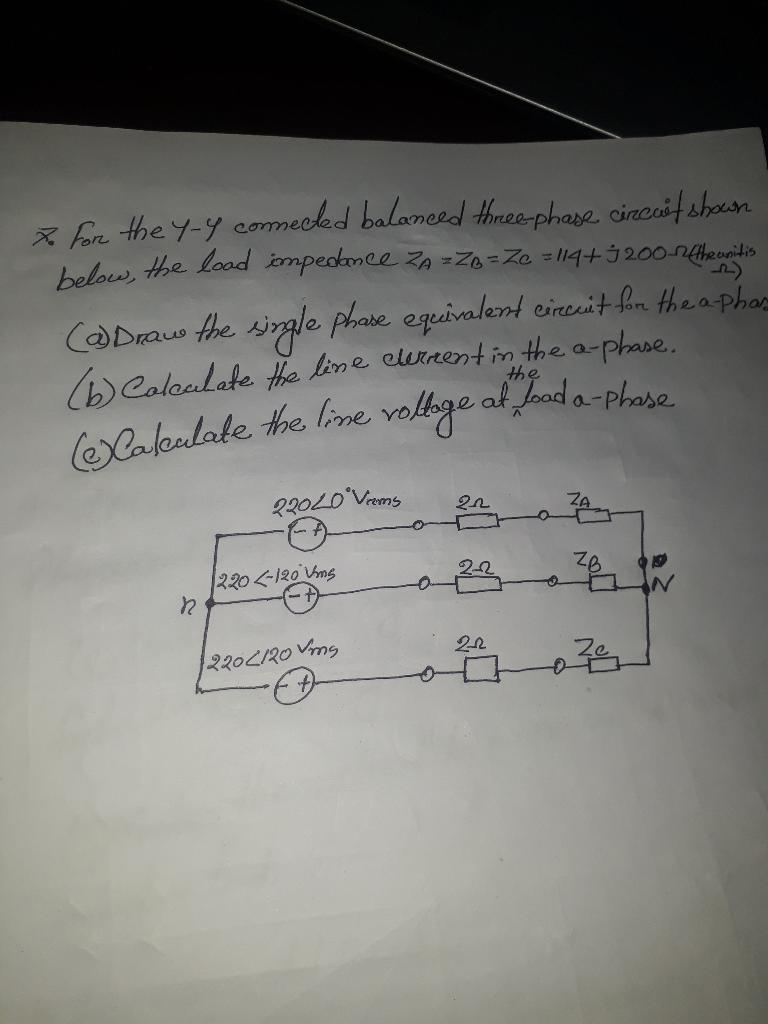 * For the Y-Y connected balanced three-phase circuit shown
below, the load impedance ZA = ZB = Zc = 114 + j 200 Ω (the unit is Ω)
(a) Draw the single phase equivalent circuit for the a-phas
(b) Calculate the line current in the a-phase.
(c) Calculate the line voltage at the load a-phase
220∠0° Vrms 2Ω ZA
- +
220∠-120° Vms 2Ω ZB
n - + N
220∠120 Vms 2Ω Zc
- +